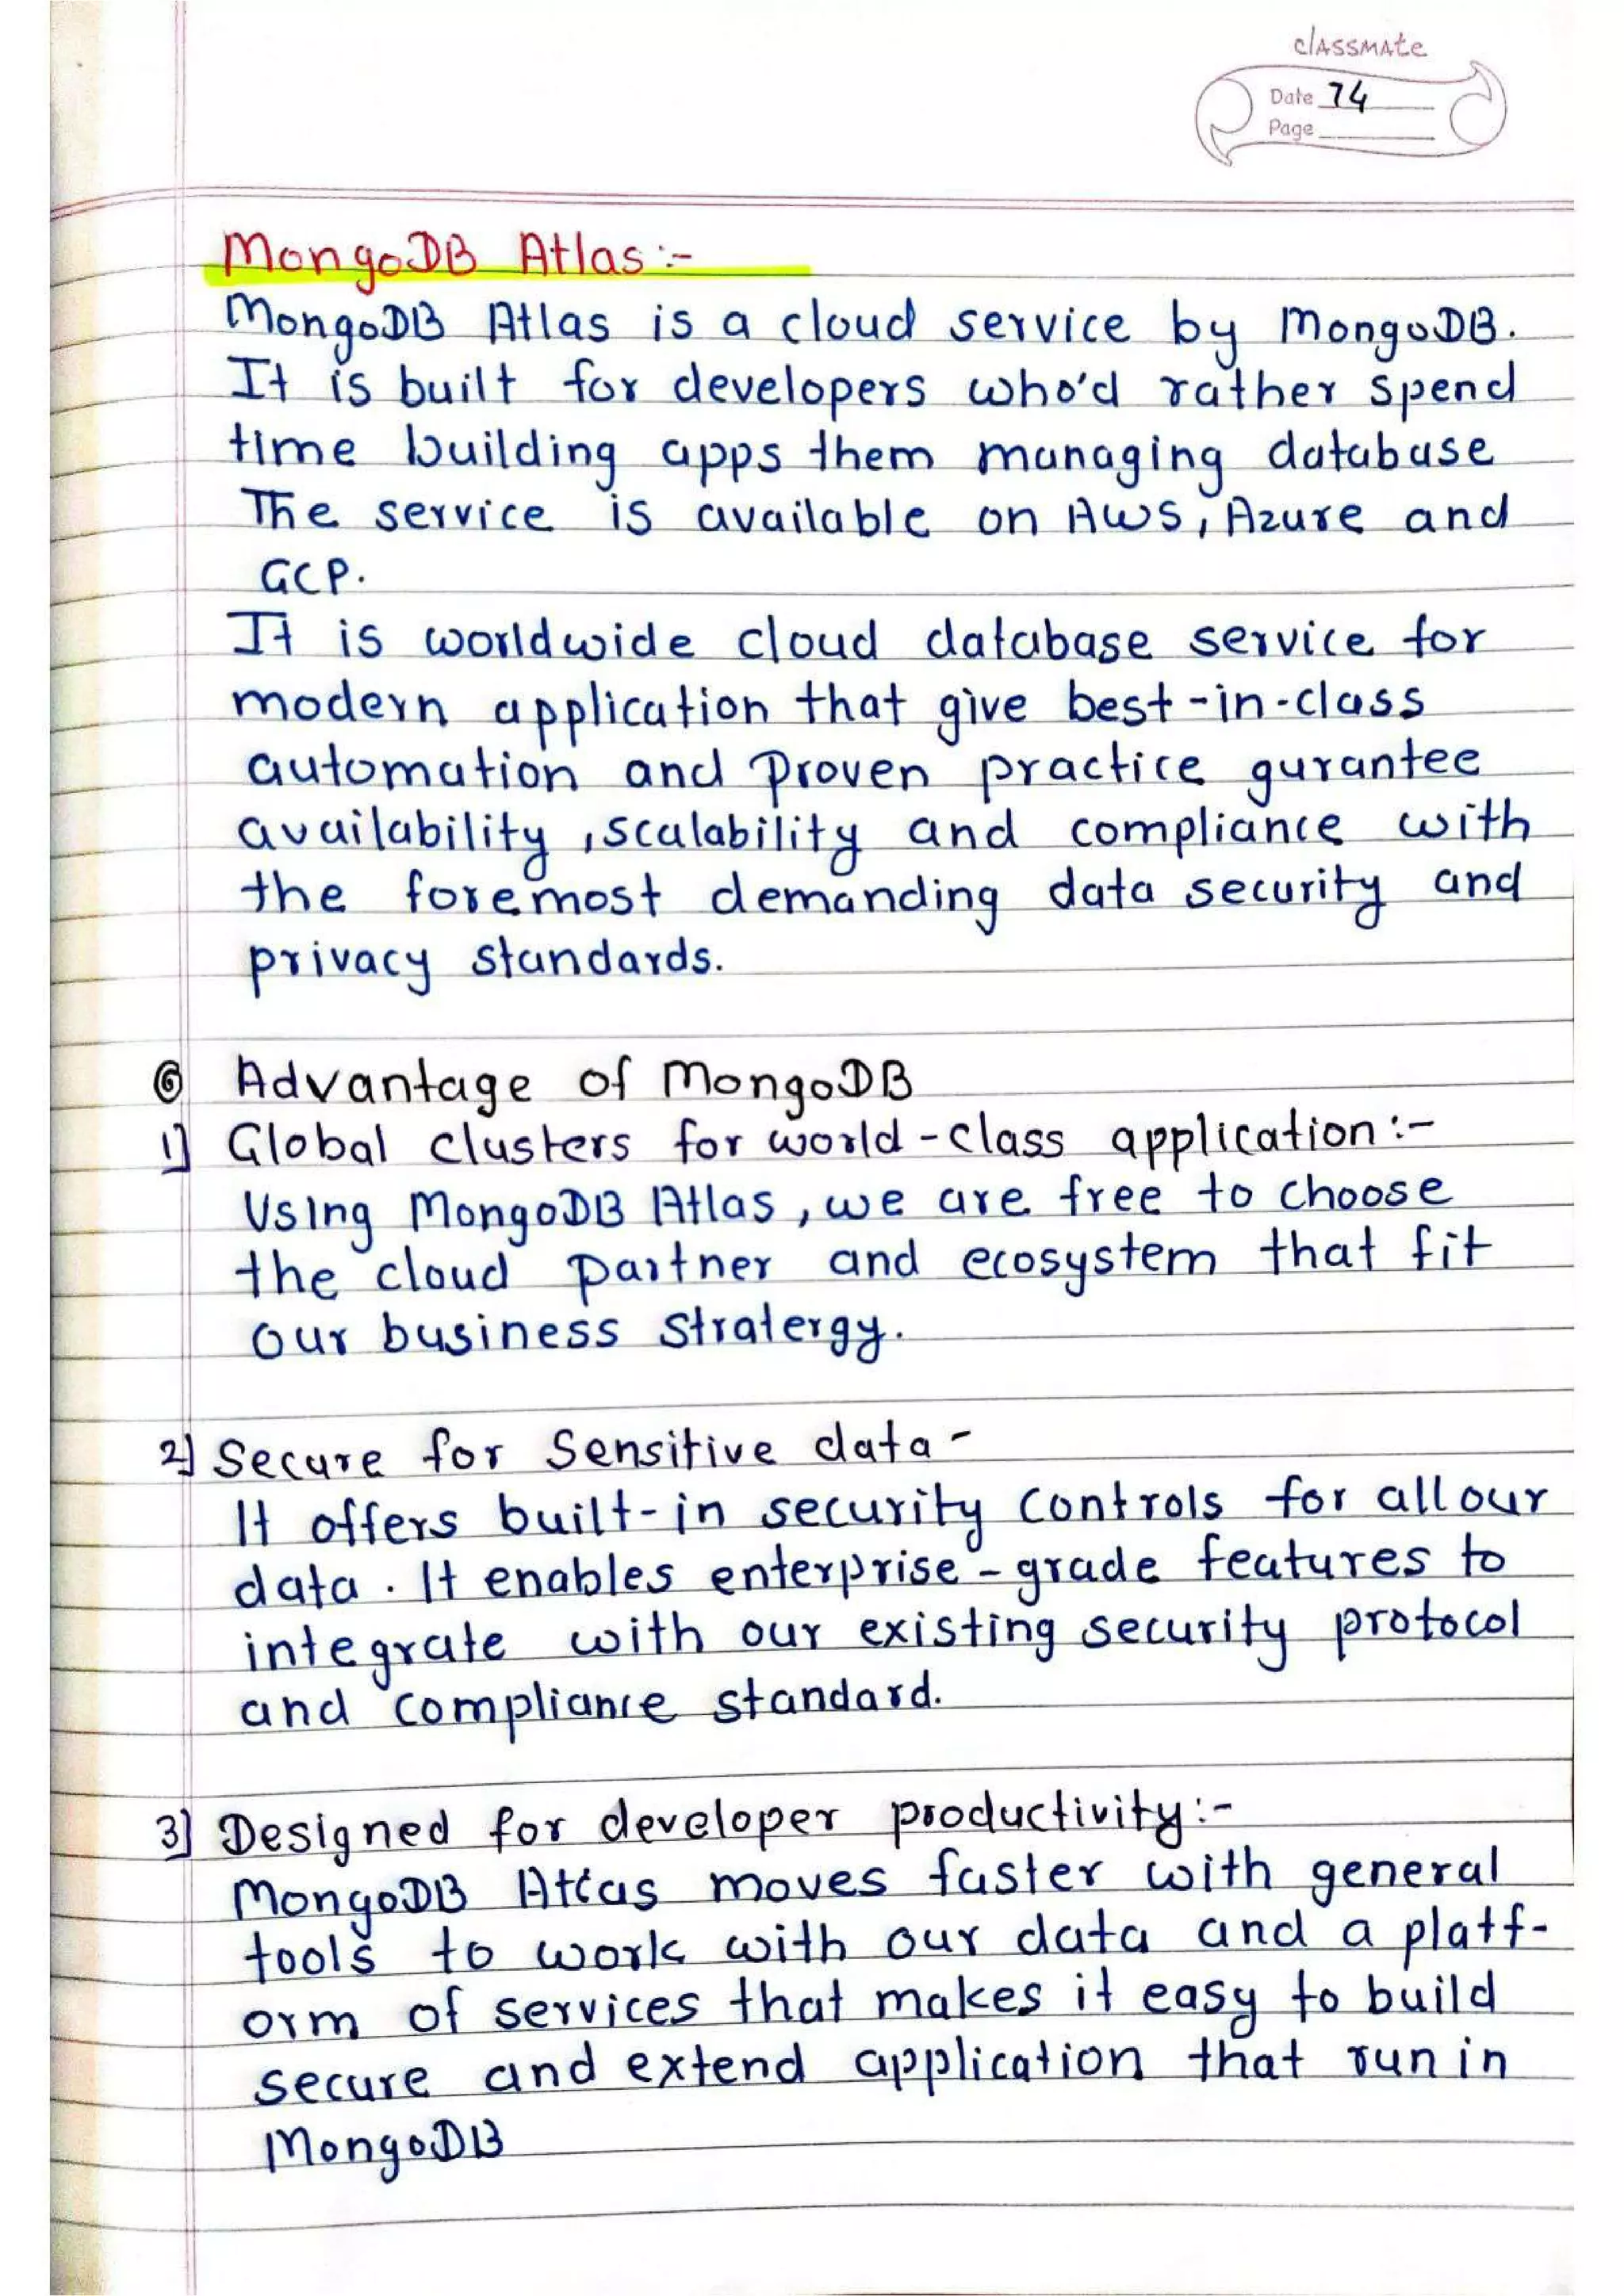 classmate
Date 74
Page
MongoDB Atlas :-
MongoDB Atlas is a cloud service by MongoDB.
It is built for developers who'd rather spend
time building apps them managing database
The service is available on AWS, Azure and
GCP.
It is worldwide cloud database service for
modern application that give best-in-class
automation and proven practice gurantee
availability, scalability and compliance with
the foremost demanding data security and
privacy standards.
⑥ Advantage of MongoDB
1] Global clusters for world-class application :-
Using MongoDB Atlas, we are free to choose
the cloud partner and ecosystem that fit
our business stratergy.
2] Secure for Sensitive data -
It offers built-in security controls for all our
data. It enables enterprise-grade features to
integrate with our existing security protocol
and compliance standard.
3] Designed for developer productivity :-
MongoDB Atlas moves faster with general
tools to work with our data and a platf-
orm of services that makes it easy to build
secure and extend application that run in
MongoDB